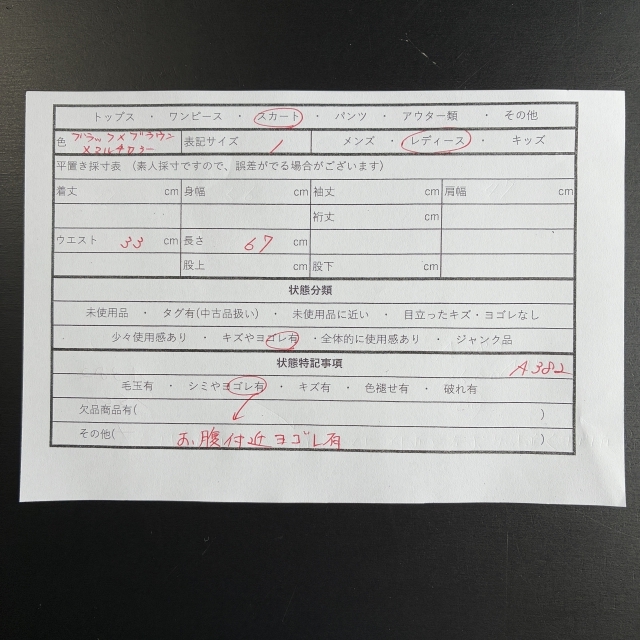 トップス ・ ワンピース ・ スカート ・ パンツ ・ アウター類 ・ その他
色 ブラック×ブラウン×マルチカラー 表記サイズ 1 メンズ ・ レディース ・ キッズ
平置き採寸表 (素人採寸ですので、誤差がでる場合がございます)
着丈 cm 身幅 cm 袖丈 cm 肩幅 cm
裄丈 cm
ウエスト 33 cm 長さ 67 cm
股上 cm 股下 cm
状態分類
未使用品 ・ タグ有(中古品扱い) ・ 未使用品に近い ・ 目立ったキズ・ヨゴレなし
少々使用感あり ・ キズやヨゴレ有 ・全体的に使用感あり ・ ジャンク品
状態特記事項 A382
毛玉有 ・ シミやヨゴレ有 ・ キズ有 ・ 色褪せ有 ・ 破れ有
欠品商品有( )
その他( お腹付近ヨゴレ有 )